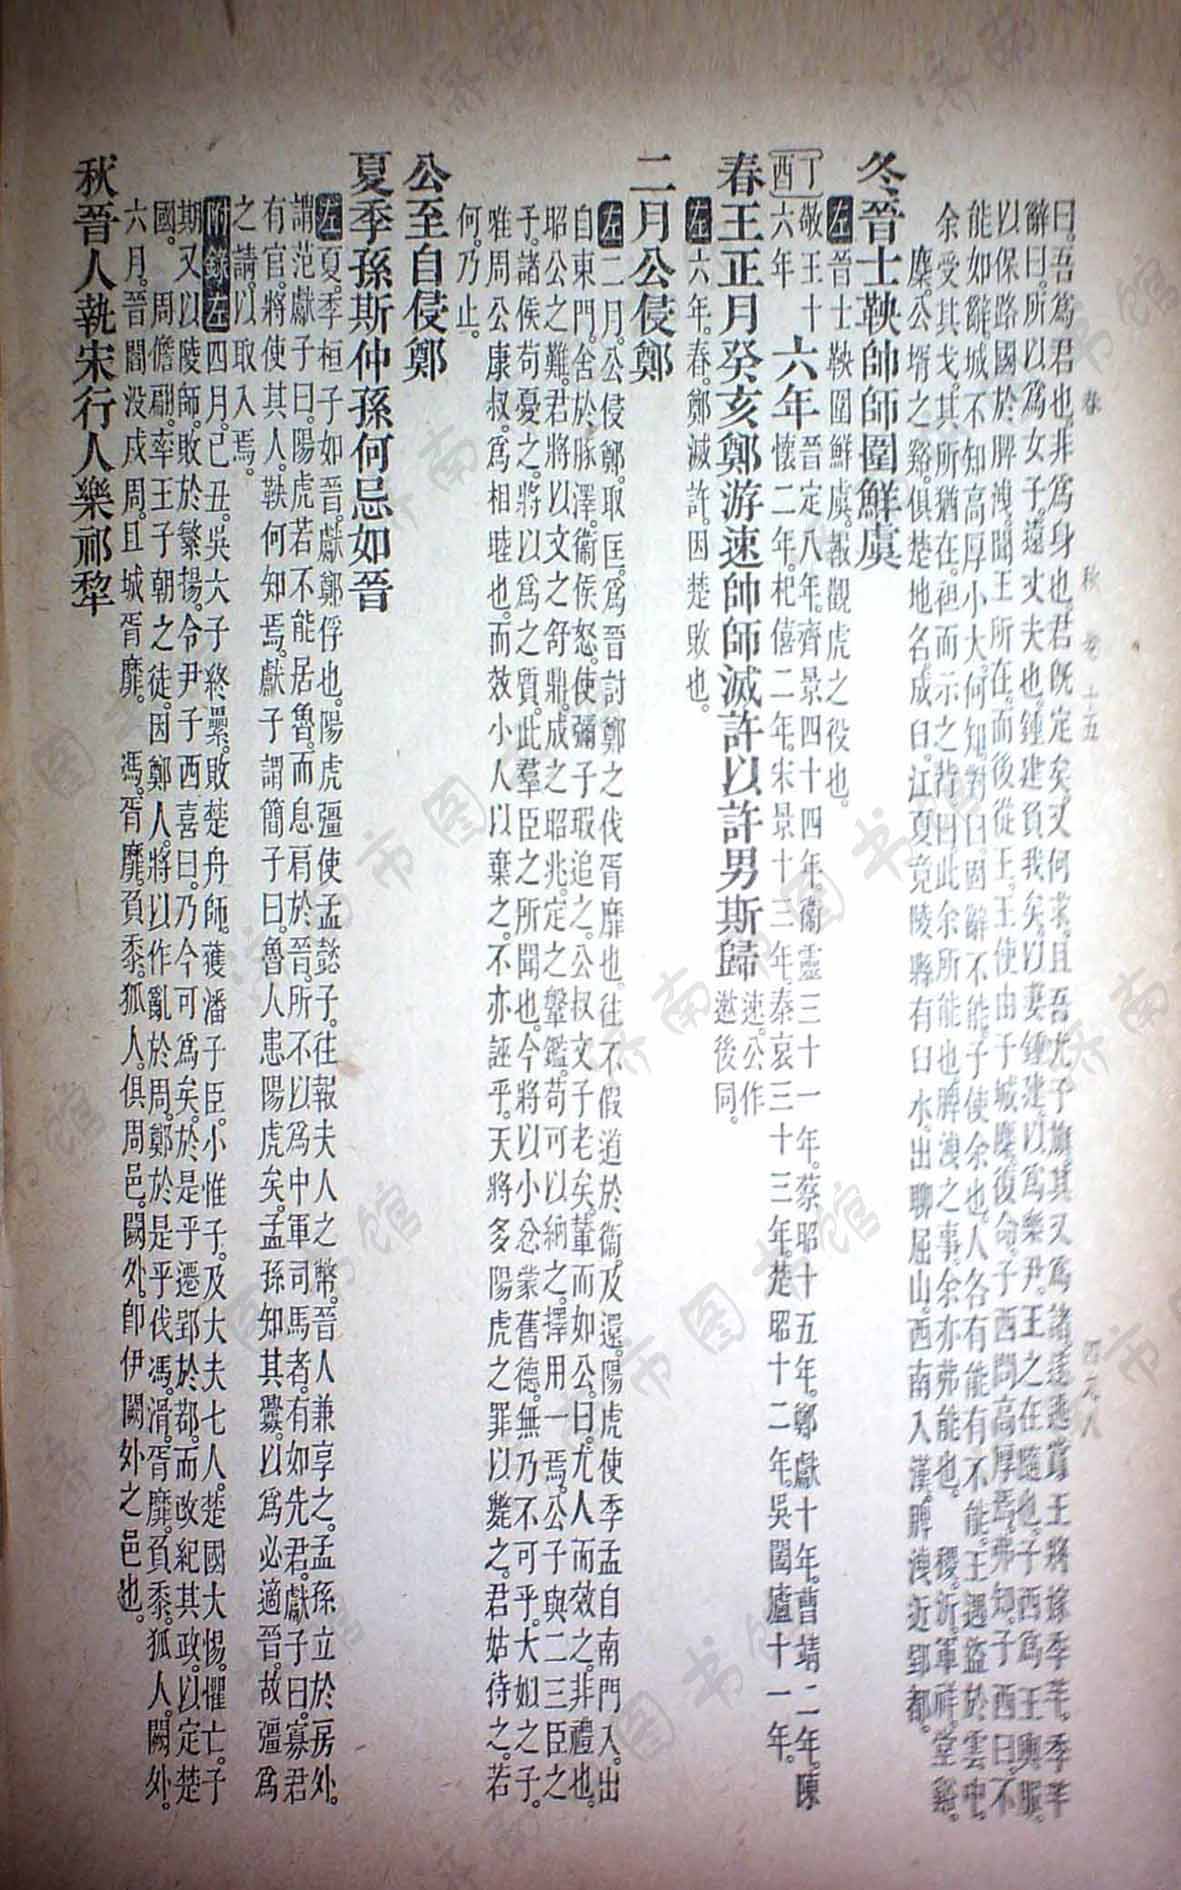 曰。吾爲君也。非爲身也。君旣定矣。又何求。且吾尤子旗。其又爲諸。遂逃賞。王將嫁季芈。季芈
辭曰。所以爲女子。遠丈夫也。鍾建負我矣。以妻鍾建。以爲樂尹。王之在隨也。子西爲王輿服。
以保路。國於脾洩。聞王所在。而後從王。王使由于城麇。復命。子西問高厚焉。弗知。子西曰。不
能。如辭。城不知高厚小大。何知。對曰。固辭不能。子使余也。人各有能有不能。王遇盜於雲中。
余受其戈。其所猶在。袒而示之背。曰。此余所能也。脾洩之事。余亦弗能也。 稷。沂。軍祥。堂谿。
麇。公壻之谿。俱楚地名。成臼。江夏竟陵縣有臼水。出聊屈山。西南入漢。脾洩近郢都。
冬晉士鞅帥師圍鮮虞
左 晉士鞅圍鮮虞。報觀虎之役也。
丁酉 敬王十六年 六年 晉定八年。齊景四十四年。衞靈三十一年。蔡昭十五年。鄭獻十年。曹靖二年。陳
懷二年。杞僖二年。宋景十三年。秦哀三十三年。楚昭十二年。吳闔廬十一年。
春王正月癸亥鄭游速帥師滅許以許男斯歸 速。公作遬。後同。
左 六年。春。鄭滅許。因楚敗也。
二月公侵鄭
左 二月。公侵鄭。取匡。爲晉討鄭之伐胥靡也。往不假道於衞。及還。陽虎使季孟自南門入。出
自東門。舍於豚澤。衞侯怒。使彌子瑕追之。公叔文子老矣。輦而如公。曰。尤人而效之。非禮也。
昭公之難。君將以文之舒鼎。成之昭兆。定之鞶鑑。苟可以納之。擇用一焉。公子與二三臣之
子。諸侯苟憂之。將以爲之質。此羣臣之所聞也。今將以小忿蒙舊德。無乃不可乎。大姒之子。
唯周公康叔。爲相睦也。而效小人以棄之。不亦誣乎。天將多陽虎之罪以斃之。君姑待之。若
何。乃止。
公至自侵鄭
夏季孫斯仲孫何忌如晉
左 夏。季桓子如晉。獻鄭俘也。陽虎彊使孟懿子。往報夫人之幣。晉人兼享之。孟孫立於房外。
謂范獻子曰。陽虎若不能居魯。而息肩於晉。所不以爲中軍司馬者。有如先君。獻子曰。寡君
有官。將使其人。鞅何知焉。獻子謂簡子曰。魯人患陽虎矣。孟孫知其釁。以爲必適晉。故彊爲
之請。以取入焉。
附錄左 四月。己丑。吳大子終纍。敗楚舟師。獲潘子臣。小惟子。及大夫七人。楚國大惕。懼亡。子
期又以陵師。敗於繁揚。令尹子西喜曰。乃今可爲矣。於是乎遷郢於鄀。而改紀其政。以定楚
國。 周儋翩率王子朝之徒。因鄭人。將以作亂於周。鄭於是乎伐馮。滑。胥靡。負黍。狐人。闕外。
六月。晉閻沒戍周。且城胥靡。 馮。胥靡。負黍。狐人。俱周邑。闕外。卽伊闕外之邑也。
秋晉人執宋行人樂祁犂